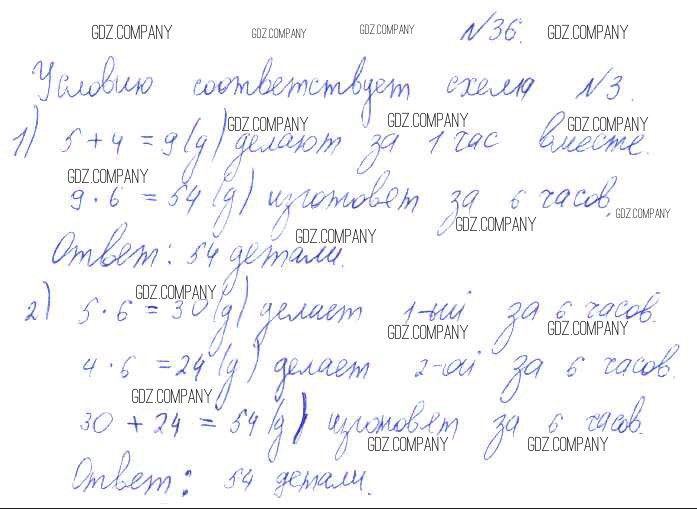 GDZ.COMPANY GDZ.COMPANY GDZ.COMPANY N36. GDZ.COMPANY
Условию соответствует схема N3.
GDZ.COMPANY GDZ.COMPANY GDZ.COMPANY
1) 5+4=9(д) делают за 1 час вместе.
GDZ.COMPANY
9·6=54(д) изготовят за 6 часов.
GDZ.COMPANY GDZ.COMPANY GDZ.COMPANY
Ответ: 54 детали.
GDZ.COMPANY
2) 5·6=30(д) делает 1-ый за 6 часов.
GDZ.COMPANY GDZ.COMPANY
4·6=24(д) делает 2-ой за 6 часов.
GDZ.COMPANY
30+24=54(д) изготовят за 6 часов.
GDZ.COMPANY GDZ.COMPANY
Ответ: 54 детали.